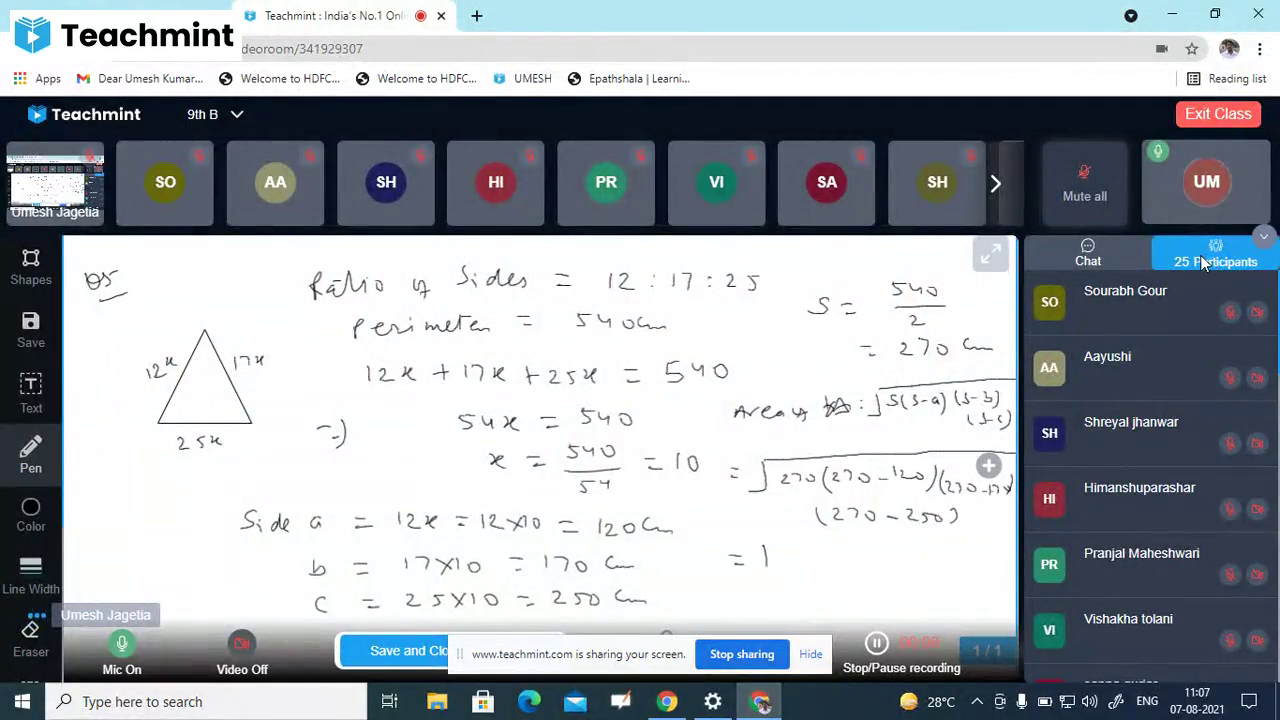 Teachmint : India's No.1 Onli
Teachmint
deoroom/341929307
Apps
Dear Umesh Kumar...
Welcome to HDFC...
Welcome to HDFC...
UMESH
Epathshala | Learni...
Reading list
Teachmint
9th B
Exit Class
SO
AA
SH
HI
PR
VI
SA
SH
Umesh Jagetia
Mute all
UM
Chat
25 Participants
Shapes
Save
Text
Pen
Color
Line Width
Eraser
Q5
Ratio of Sides = 12 : 17 : 25
Perimeter = 540cm
12x + 17x + 25x = 540
=) 54x = 540
x = 540/54 = 10
12x
17x
25x
Side a = 12x = 12×10 = 120 Cm
b = 17×10 = 170 Cm
c = 25×10 = 250 Cm
S = 540/2
= 270 Cm
Area of : √S(S-a)(S-b)
(S-c)
= √270(270-120)(270-170)
(270-250)
=
SO
Sourabh Gour
AA
Aayushi
SH
Shreyal jhanwar
HI
Himanshuparashar
PR
Pranjal Maheshwari
VI
Vishakha tolani
Umesh Jagetia
Mic On
Video Off
Save and Clo
www.teachmint.com is sharing your screen.
Stop sharing
Hide
Stop/Pause recording
1 / 1
Type here to search
28°C
ENG
11:07
07-08-2021